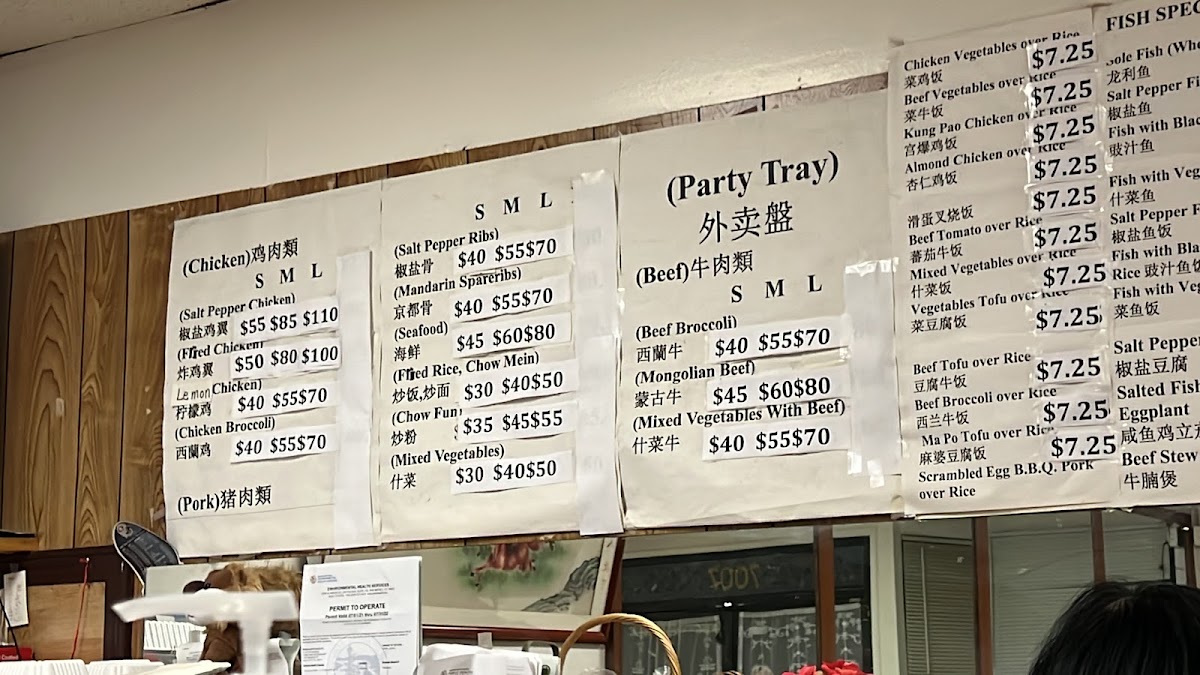 (Chicken)鸡肉類
S M L
(Salt Pepper Chicken)
椒盐鸡翼 $55 $85 $110
(Fried Chicken)
炸鸡翼 $50 $80 $100
Lemon Chicken)
柠檬鸡 $40 $55$70
(Chicken Broccoli)
西蘭鸡 $40 $55$70
(Pork)猪肉類
S M L
(Salt Pepper Ribs)
椒盐骨 $40 $55$70
(Mandarin Spareribs)
京都骨 $40 $55$70
(Seafood)
海鲜 $45 $60$80
(Fried Rice, Chow Mein)
炒饭,炒面 $30 $40$50
(Chow Fun
炒粉 $35 $45$55
(Mixed Vegetables)
什菜 $30 $40$50
(Party Tray)
外卖盤
(Beef)牛肉類
S M L
(Beef Broccoli)
西蘭牛 $40 $55$70
(Mongolian Beef)
蒙古牛 $45 $60$80
(Mixed Vegetables With Beef)
什菜牛 $40 $55$70
Chicken Vegetables over Rice
菜鸡饭 $7.25
Beef Vegetables over Rice
菜牛饭 $7.25
Kung Pao Chicken over Rice
宫爆鸡饭 $7.25
Almond Chicken over Rice
杏仁鸡饭 $7.25
滑蛋叉烧饭 $7.25
Beef Tomato over Rice
蕃茄牛饭 $7.25
Mixed Vegetables over Rice
什菜饭 $7.25
Vegetables Tofu over Rice
菜豆腐饭 $7.25
Beef Tofu over Rice
豆腐牛饭 $7.25
Beef Broccoli over Rice
西兰牛饭 $7.25
Ma Po Tofu over Rice
麻婆豆腐饭 $7.25
Scrambled Egg B.B.Q. Pork
over Rice
FISH SPEC
Sole Fish (Who
龙利鱼
Salt Pepper Fi
椒盐鱼
Fish with Blac
豉汁鱼
Fish with Veg
什菜鱼
Salt Pepper F
椒盐鱼饭
Fish with Bla
Rice 豉汁鱼饭
Fish with Veg
菜鱼饭
Salt Pepper
椒盐豆腐
Salted Fish
Eggplant
咸鱼鸡立茄
Beef Stew
牛腩煲
ENVIRONMENTAL HEALTH SERVICES
PERMIT TO OPERATE
2007